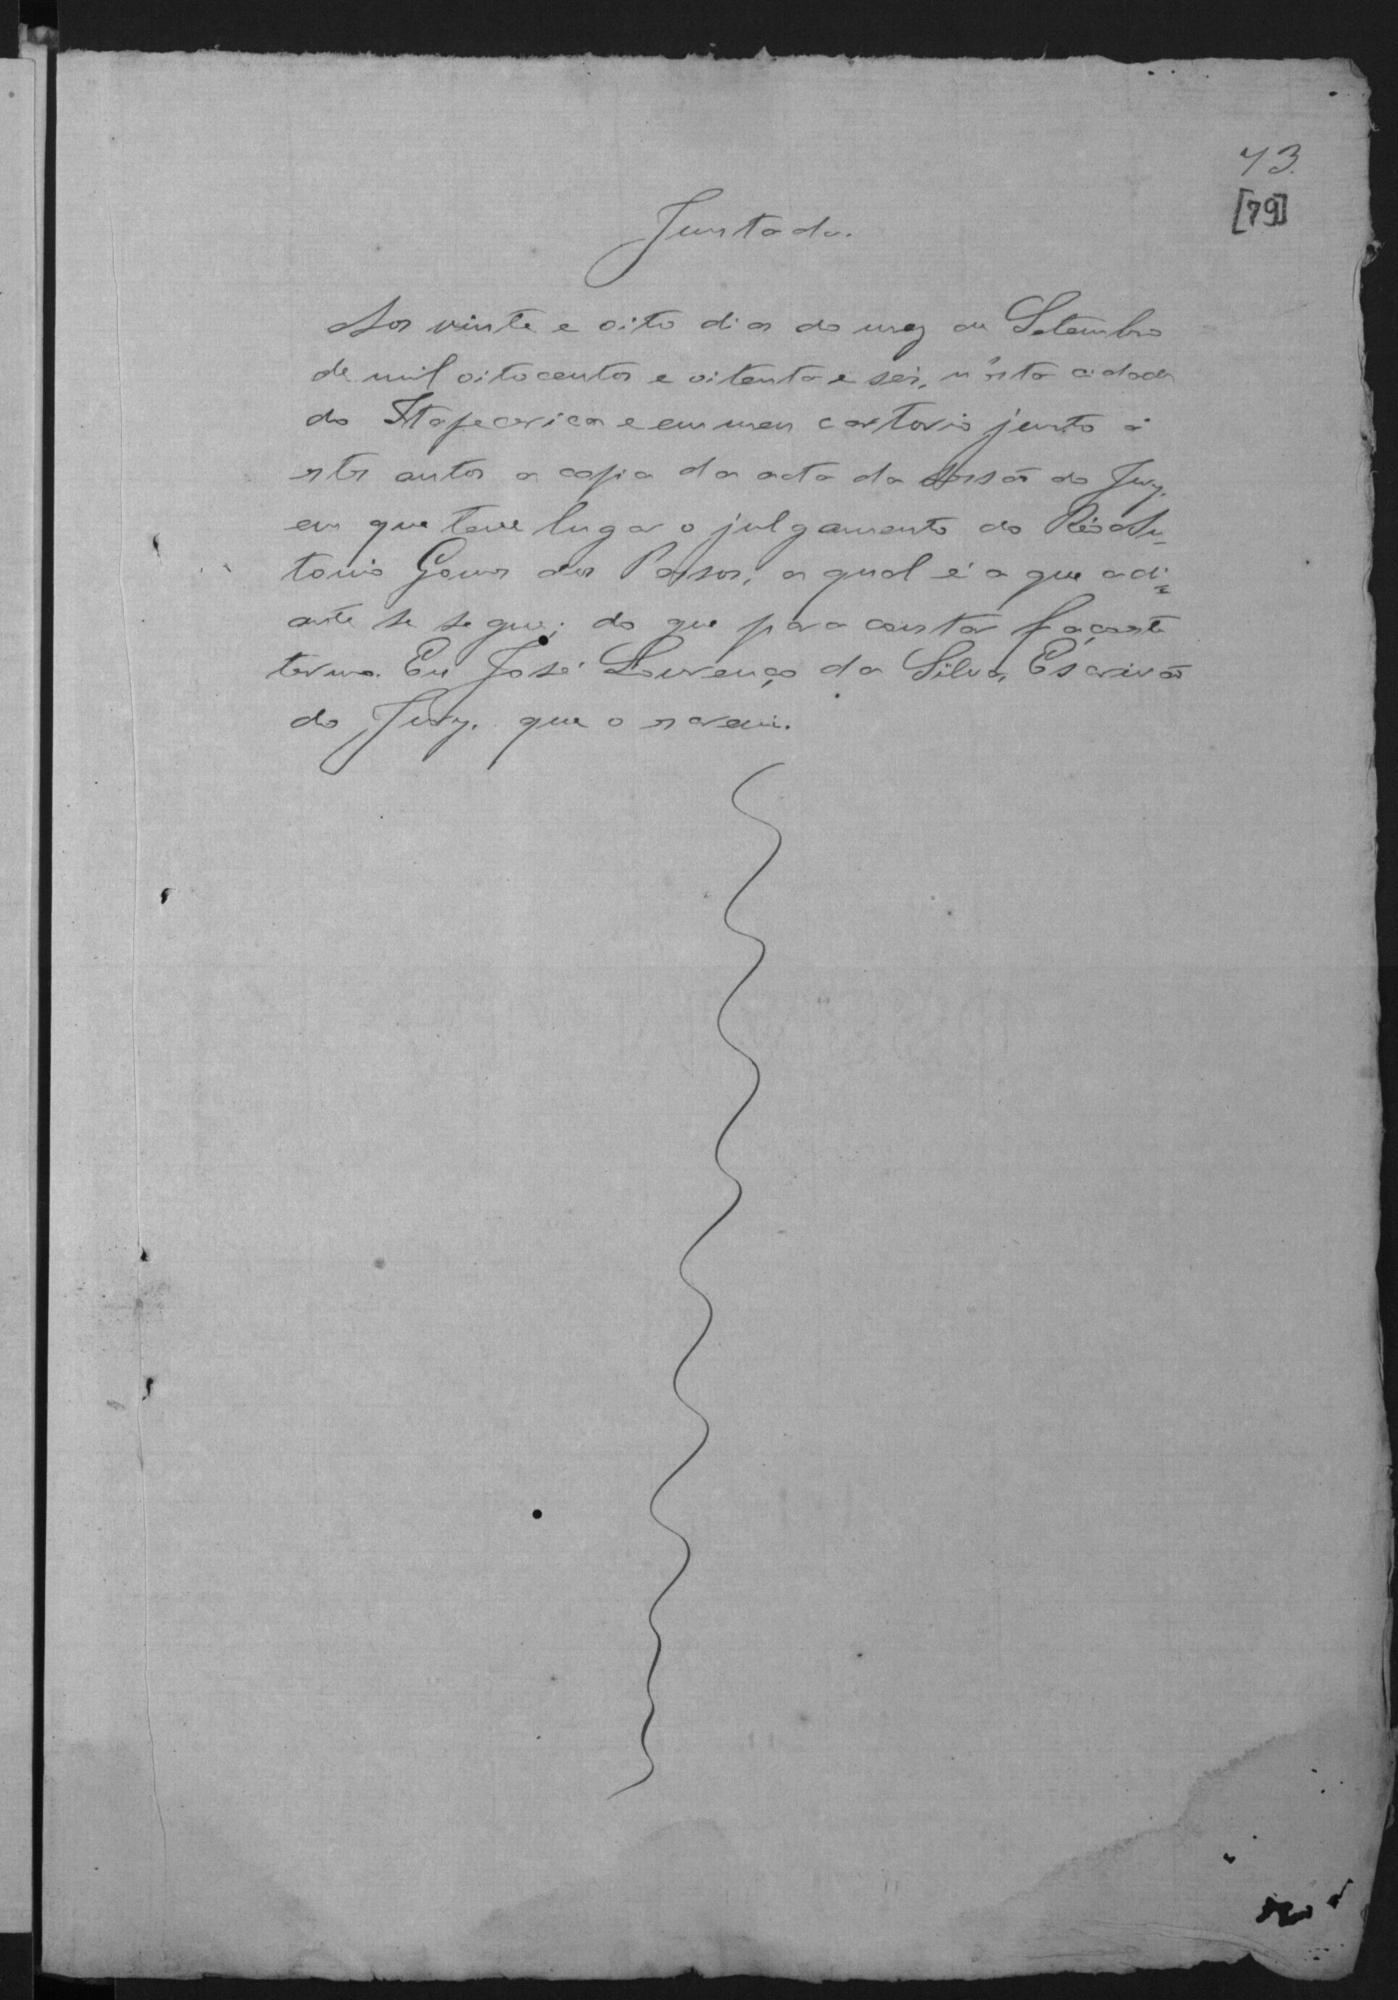 73.
[79]
Juntada.
Aos vinte e oito dias do mez de Setembro
de mil oitocentos e oitenta e seis, n'esta cidade
do Itapecerica e em meu cartorio junto á
estes autos a copia da acta da sessão do Jury,
em que teve lugar o julgamento do Réo An-
tonio Gomes dos Passos, a qual é a que adi=
ante se segue; do que para constar faço este
termo. Eu José Lourenço da Silva, Escrivão
do Jury, que o escrevi.